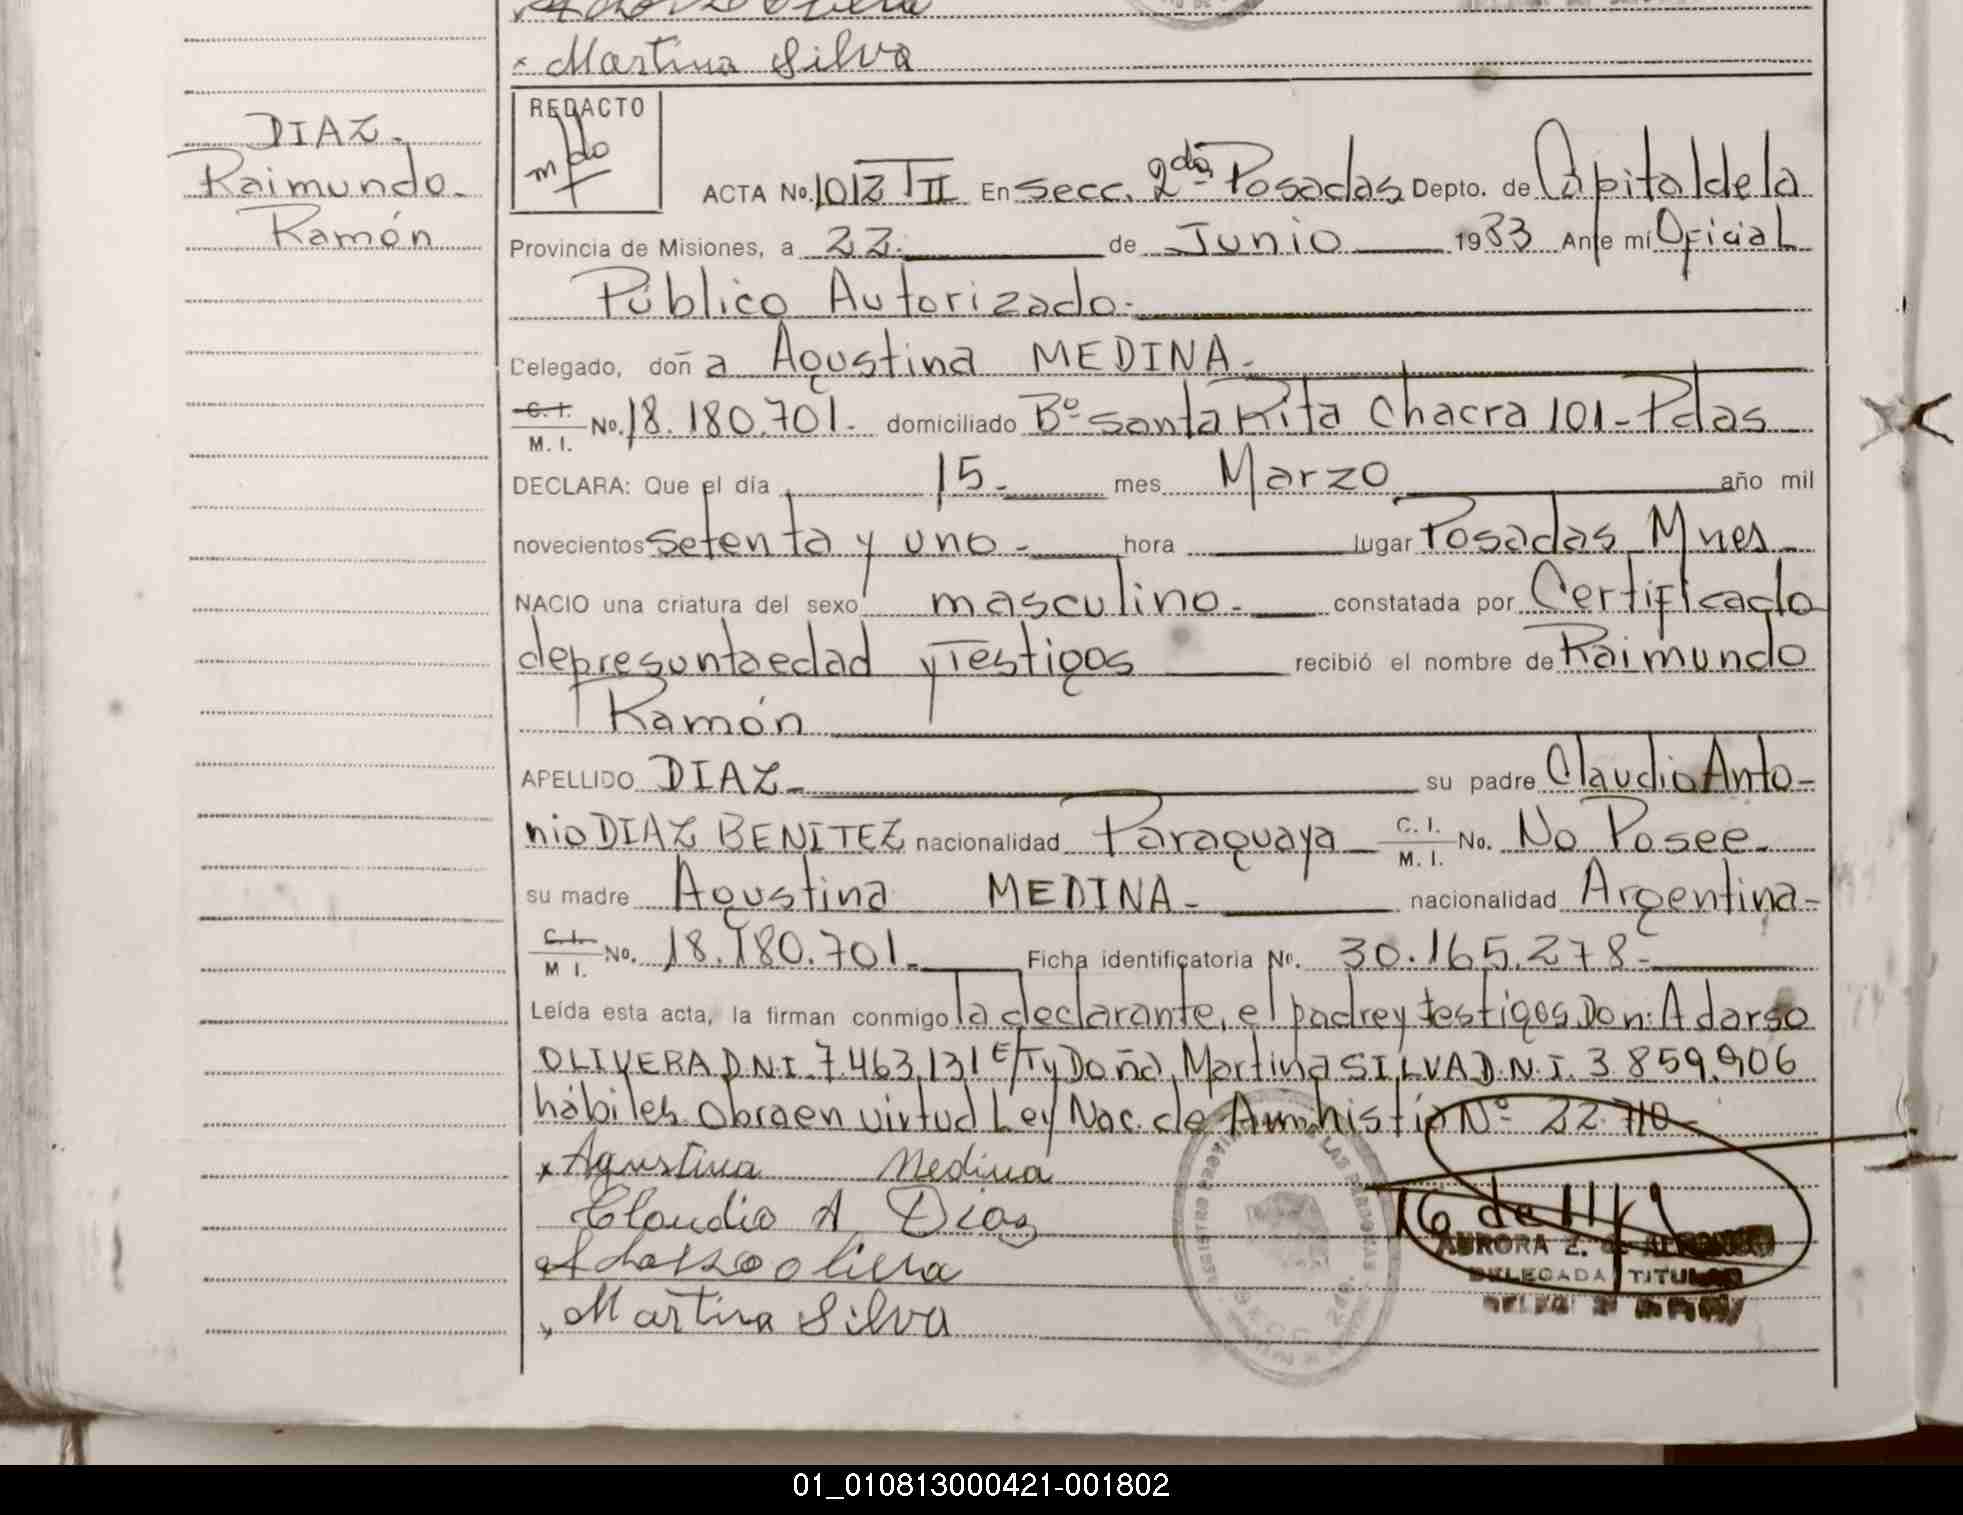 Martina Silva
DIAZ.
Raimundo.
Ramón
REDACTO
ACTA No. 1012 TII En secc. 2da Posadas Depto. de Capital de la
Provincia de Misiones, a 22. de Junio 1983 Ante mí Oficial
Público Autorizado.
Delegado, doña Agustina MEDINA.
C. I. / M. I. No. 18.180.701. domiciliado Bº Santa Rita Chacra 101-Pdas
DECLARA: Que el día 15. mes Marzo año mil
novecientos setenta y uno. hora lugar Posadas Mnes.
NACIO una criatura del sexo masculino. constatada por Certificado
de presunta edad y Testigos recibió el nombre de Raimundo
Ramón
APELLIDO DIAZ. su padre Claudio Anto-
nio DIAZ BENITEZ nacionalidad Paraguaya C. I. / M. I. No. No Posee.
su madre Agustina MEDINA. nacionalidad Argentina.
C. I. / M I. No. 18.180.701. Ficha identificatoria No. 30.165.278.
Leída esta acta, la firman conmigo la declarante, el padre y testigos Don: Adarso
OLIVERA D.N.I. 7.463.131 E/T y Doña Martina SILVA D.N.I. 3.859.906
hábiles. Obra en virtud Ley Nac. de Amnhistía Nº 22.710.
Agustina Medina
Claudio A Diaz
Adarso olivera
Martina Silva
AURORA Z. de
DELEGADA TITULAR
01_010813000421-001802